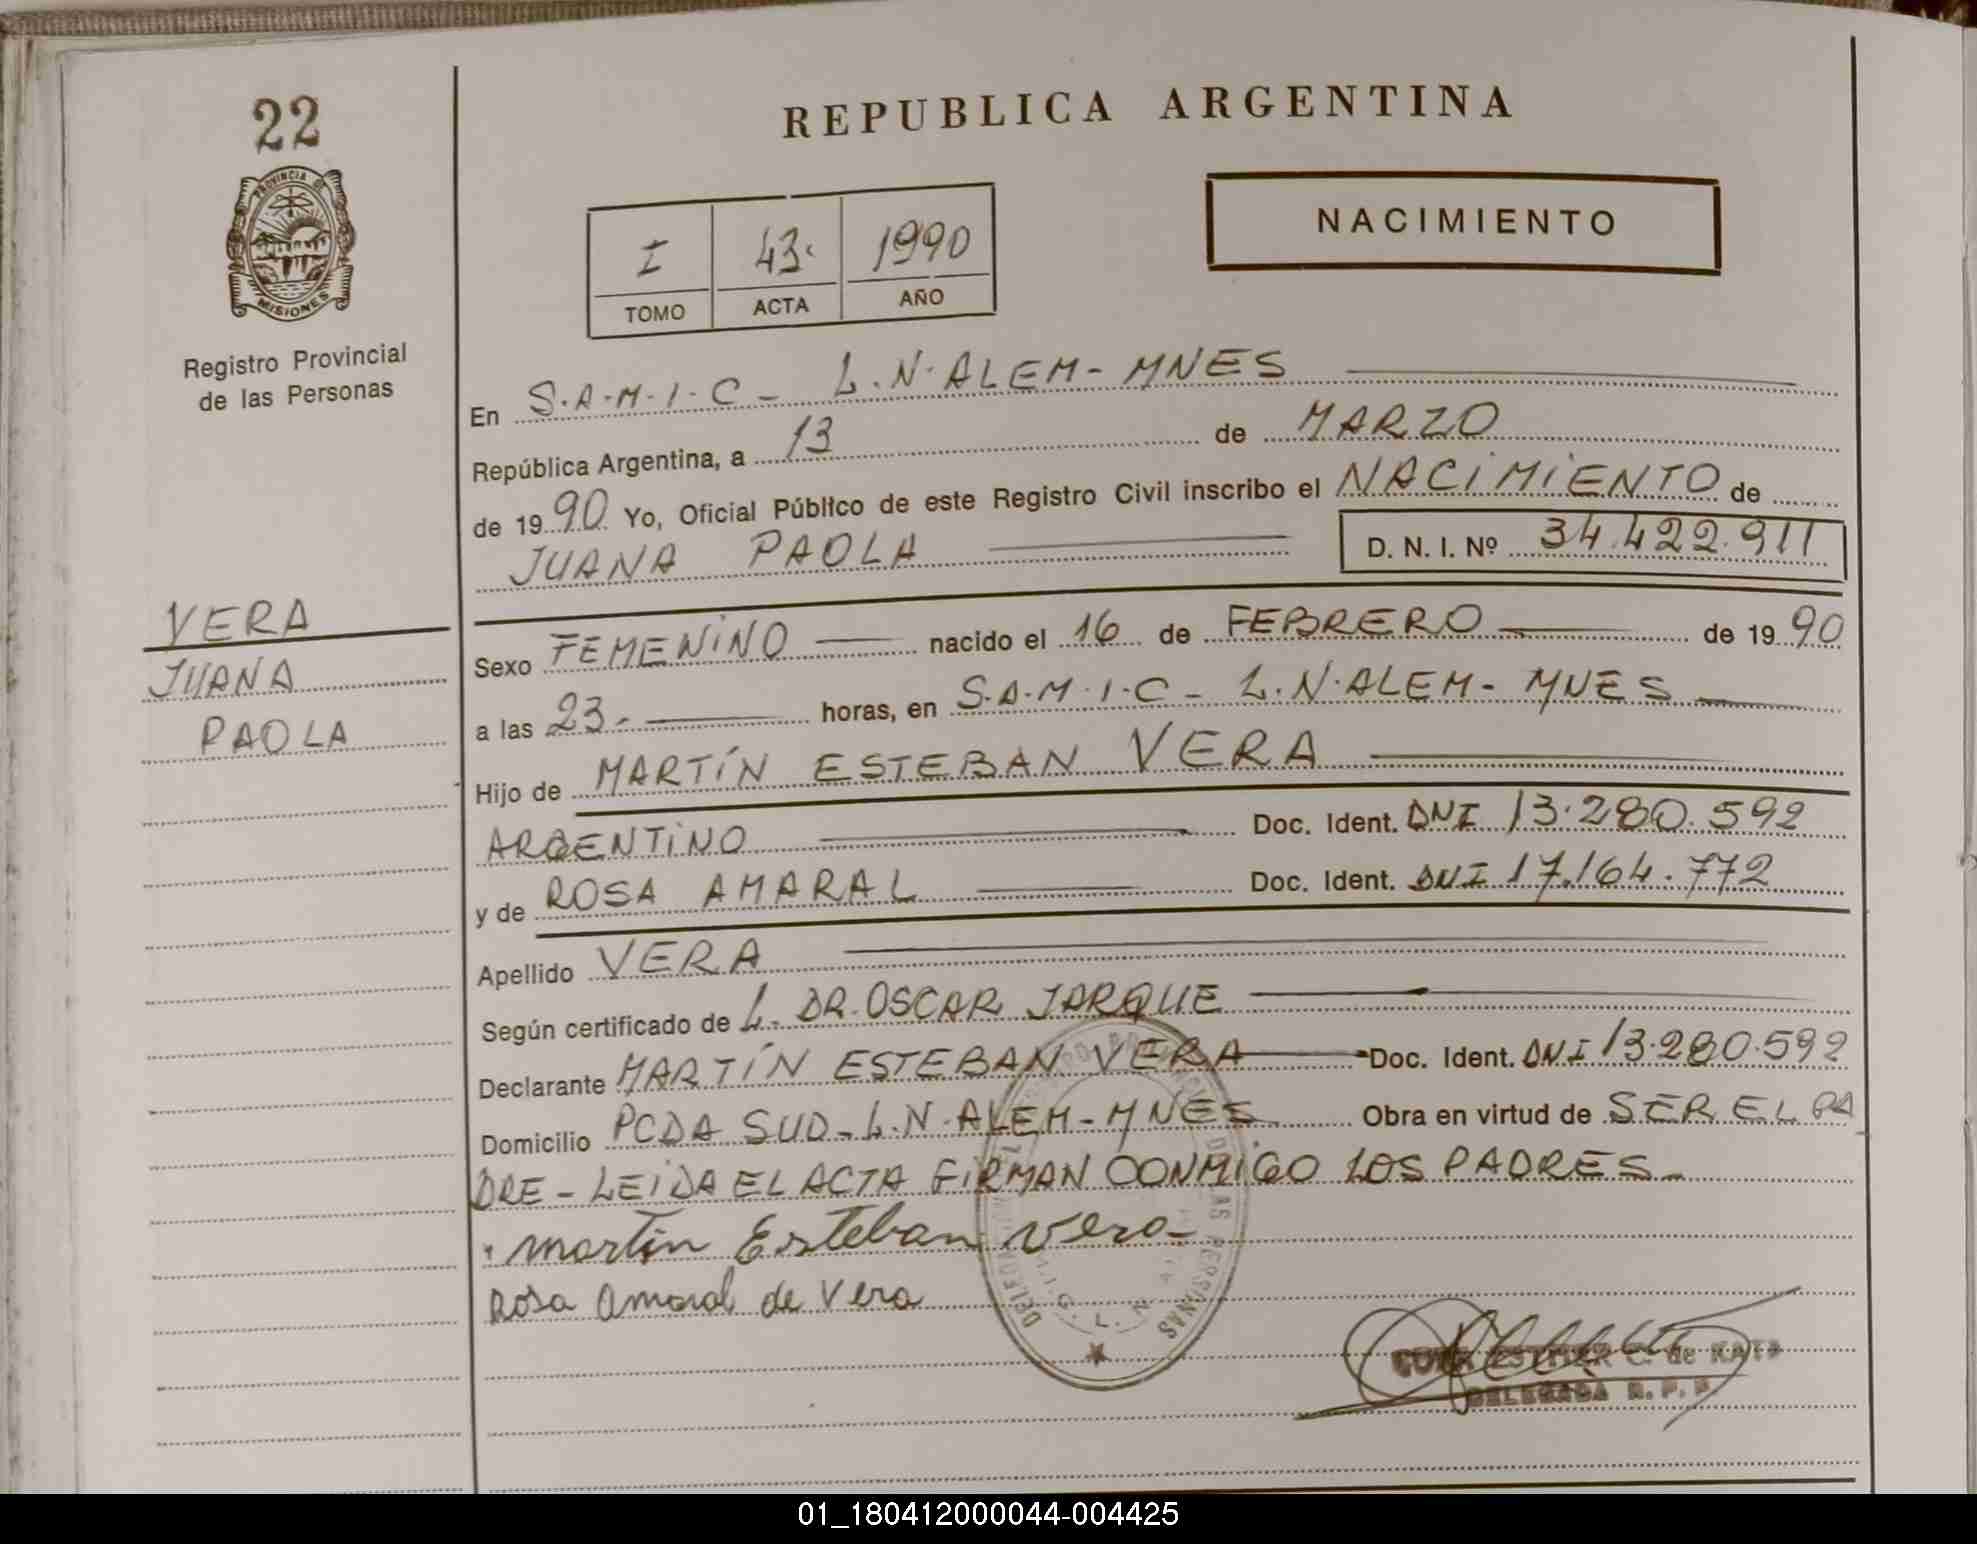 22
REPUBLICA ARGENTINA
PROVINCIA DE
MISIONES
Registro Provincial
de las Personas
NACIMIENTO
I 43. 1990
TOMO ACTA AÑO
En S.A.M.I.C - L.N.ALEM - MNES
República Argentina, a 13 de MARZO
de 19 90 Yo, Oficial Público de este Registro Civil inscribo el NACIMIENTO de
JUANA PAOLA D. N. I. Nº 34.422.911
VERA
JUANA
PAOLA
Sexo FEMENINO nacido el 16 de FEBRERO de 19 90
a las 23.- horas, en S.A.M.I.C - L.N.ALEM - MNES
Hijo de MARTÍN ESTEBAN VERA
ARGENTINO Doc. Ident. DNI 13.280.592
y de ROSA AMARAL Doc. Ident. DNI 17.164.772
Apellido VERA
Según certificado de L. DR. OSCAR JARQUE
Declarante MARTÍN ESTEBAN VERA Doc. Ident. DNI 13.280.592
Domicilio PCDA SUD - L.N.ALEM - MNES Obra en virtud de SER EL PA
DRE - LEIDA EL ACTA FIRMAN CONMIGO LOS PADRES -
Martin Esteban Vera
Rosa Amaral de Vera
ESTHER C. de KATZ
DELEGADA R. P. P.
01_180412000044-004425